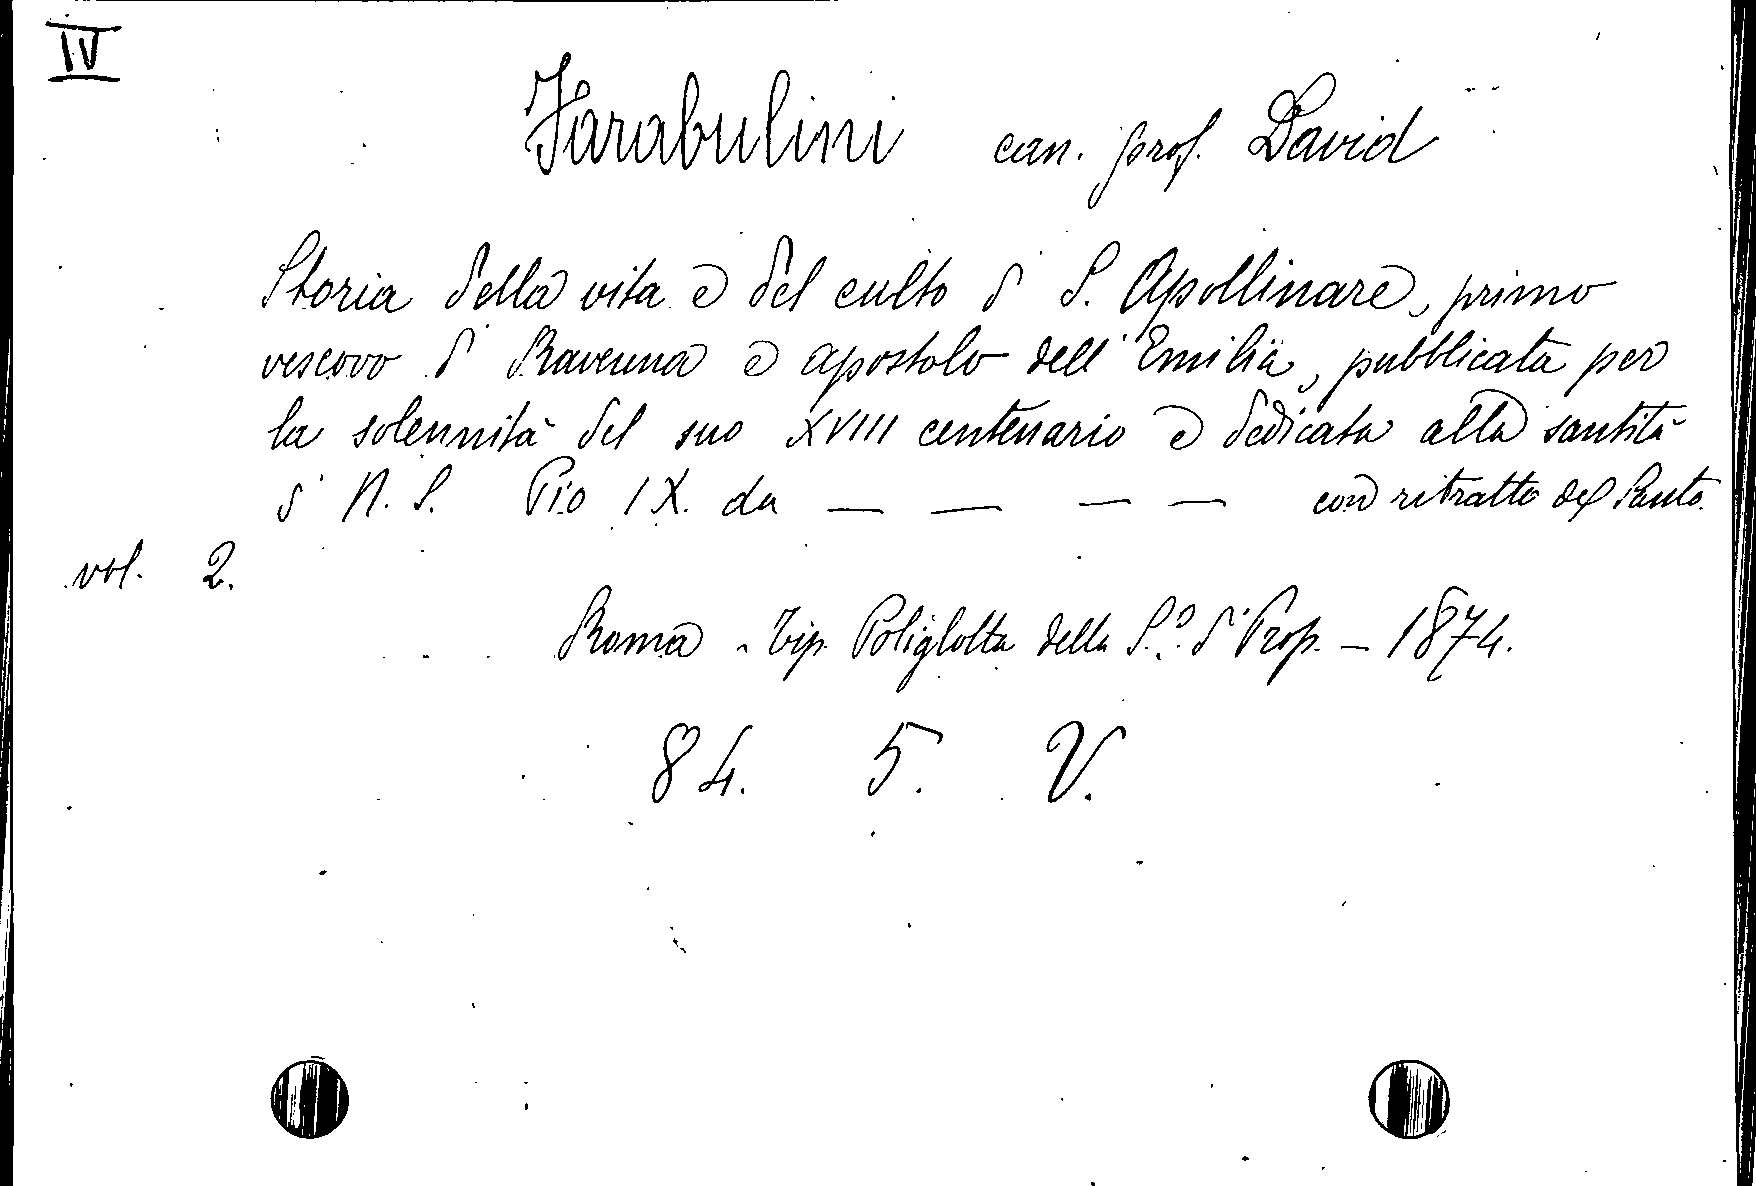 IV
Farabulini can. prof. David
Storia della vita e del culto di S. Apollinare, primo
vescovo di Ravenna e apostolo dell'Emilia, pubblicata per
la solennità del suo XVIII centenario e dedicata alla santità
di N. S. Pio IX. da — — — — con ritratto del Santo.
vol. 2.
Roma - Tip. Poliglotta della S.ª di Prop. - 1874.
84. 5. V.